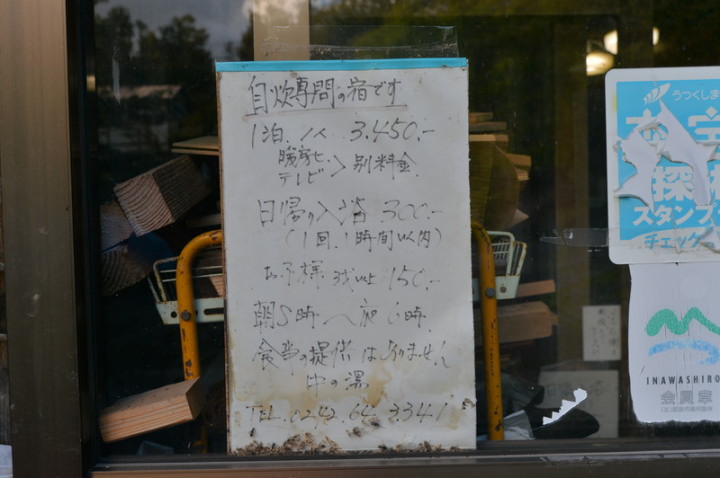 自炊専問の宿です
1泊.1人 3.450.-
暖房ヒ
テレビ > 別料金
日帰り入浴 300.-
(1回.1時間以内)
お子様 3才以上 150.-
朝8時〜夜6時
食事の提供はありません
中の湯
TEL.0242.64.3341
うつくしま
探
スタンプ
チェック
INAWASHIRO
会員章